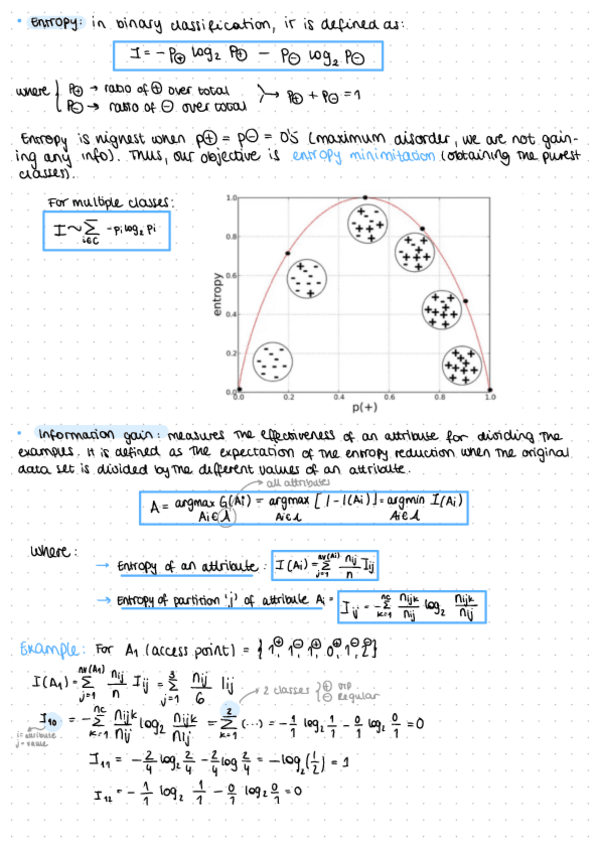 • Entropy: in binary classification, it is defined as:
I = - P⊕ log₂ P⊕ - P⊖ log₂ P⊖
where { P⊕ → ratio of ⊕ over total
P⊖ → ratio of ⊖ over total
P⊕ + P⊖ = 1
Entropy is highest when p⊕ = p⊖ = 0'5 (maximum disorder, we are not gain-
ing any info). Thus, our objective is entropy minimitation (obtaining the purest
classes).
For multiple classes:
I ~ Σ i∈C -pi log₂ pi
entropy
1.0
0.8
0.6
0.4
0.2
0.0
0.0 0.2 0.4 0.6 0.8 1.0
p(+)
• Information gain: measures the effectiveness of an attribute for dividing the
examples. It is defined as the expectation of the entropy reduction when the original
data set is divided by the different values of an attribute.
all attributes
A = argmax G(Ai) = argmax [I - I(Ai)] = argmin I(Ai)
Ai∈λ Ai∈λ Ai∈λ
where:
→ Entropy of an attribute: I(Ai) = Σ j=1 nv(Ai) nij/n Iij
→ Entropy of partition 'j' of attribute Ai = Iij = - Σ k=1 nc nijk/nij log₂ nijk/nij
Example: For A₁ (access point) = { 1⊕, 1⊖, 1⊕, 0⊕, 1⊖, 2⊕ }
I(A₁) = Σ j=1 nv(A₁) nij/n Iij = Σ j=1 3 nij/6 Iij
2 classes { ⊕ VIP
⊖ Regular
I₁₀ = - Σ k=1 nc nijk/nij log₂ nijk/nij = Σ k=1 2 (...) = - 1/1 log₂ 1/1 - 0/1 log₂ 0/1 = 0
i = attribute
j = value
I₁₁ = - 2/4 log₂ 2/4 - 2/4 log 2/4 = - log₂(1/2) = 1
I₁₂ = - 1/1 log₂ 1/1 - 0/1 log₂ 0/1 = 0